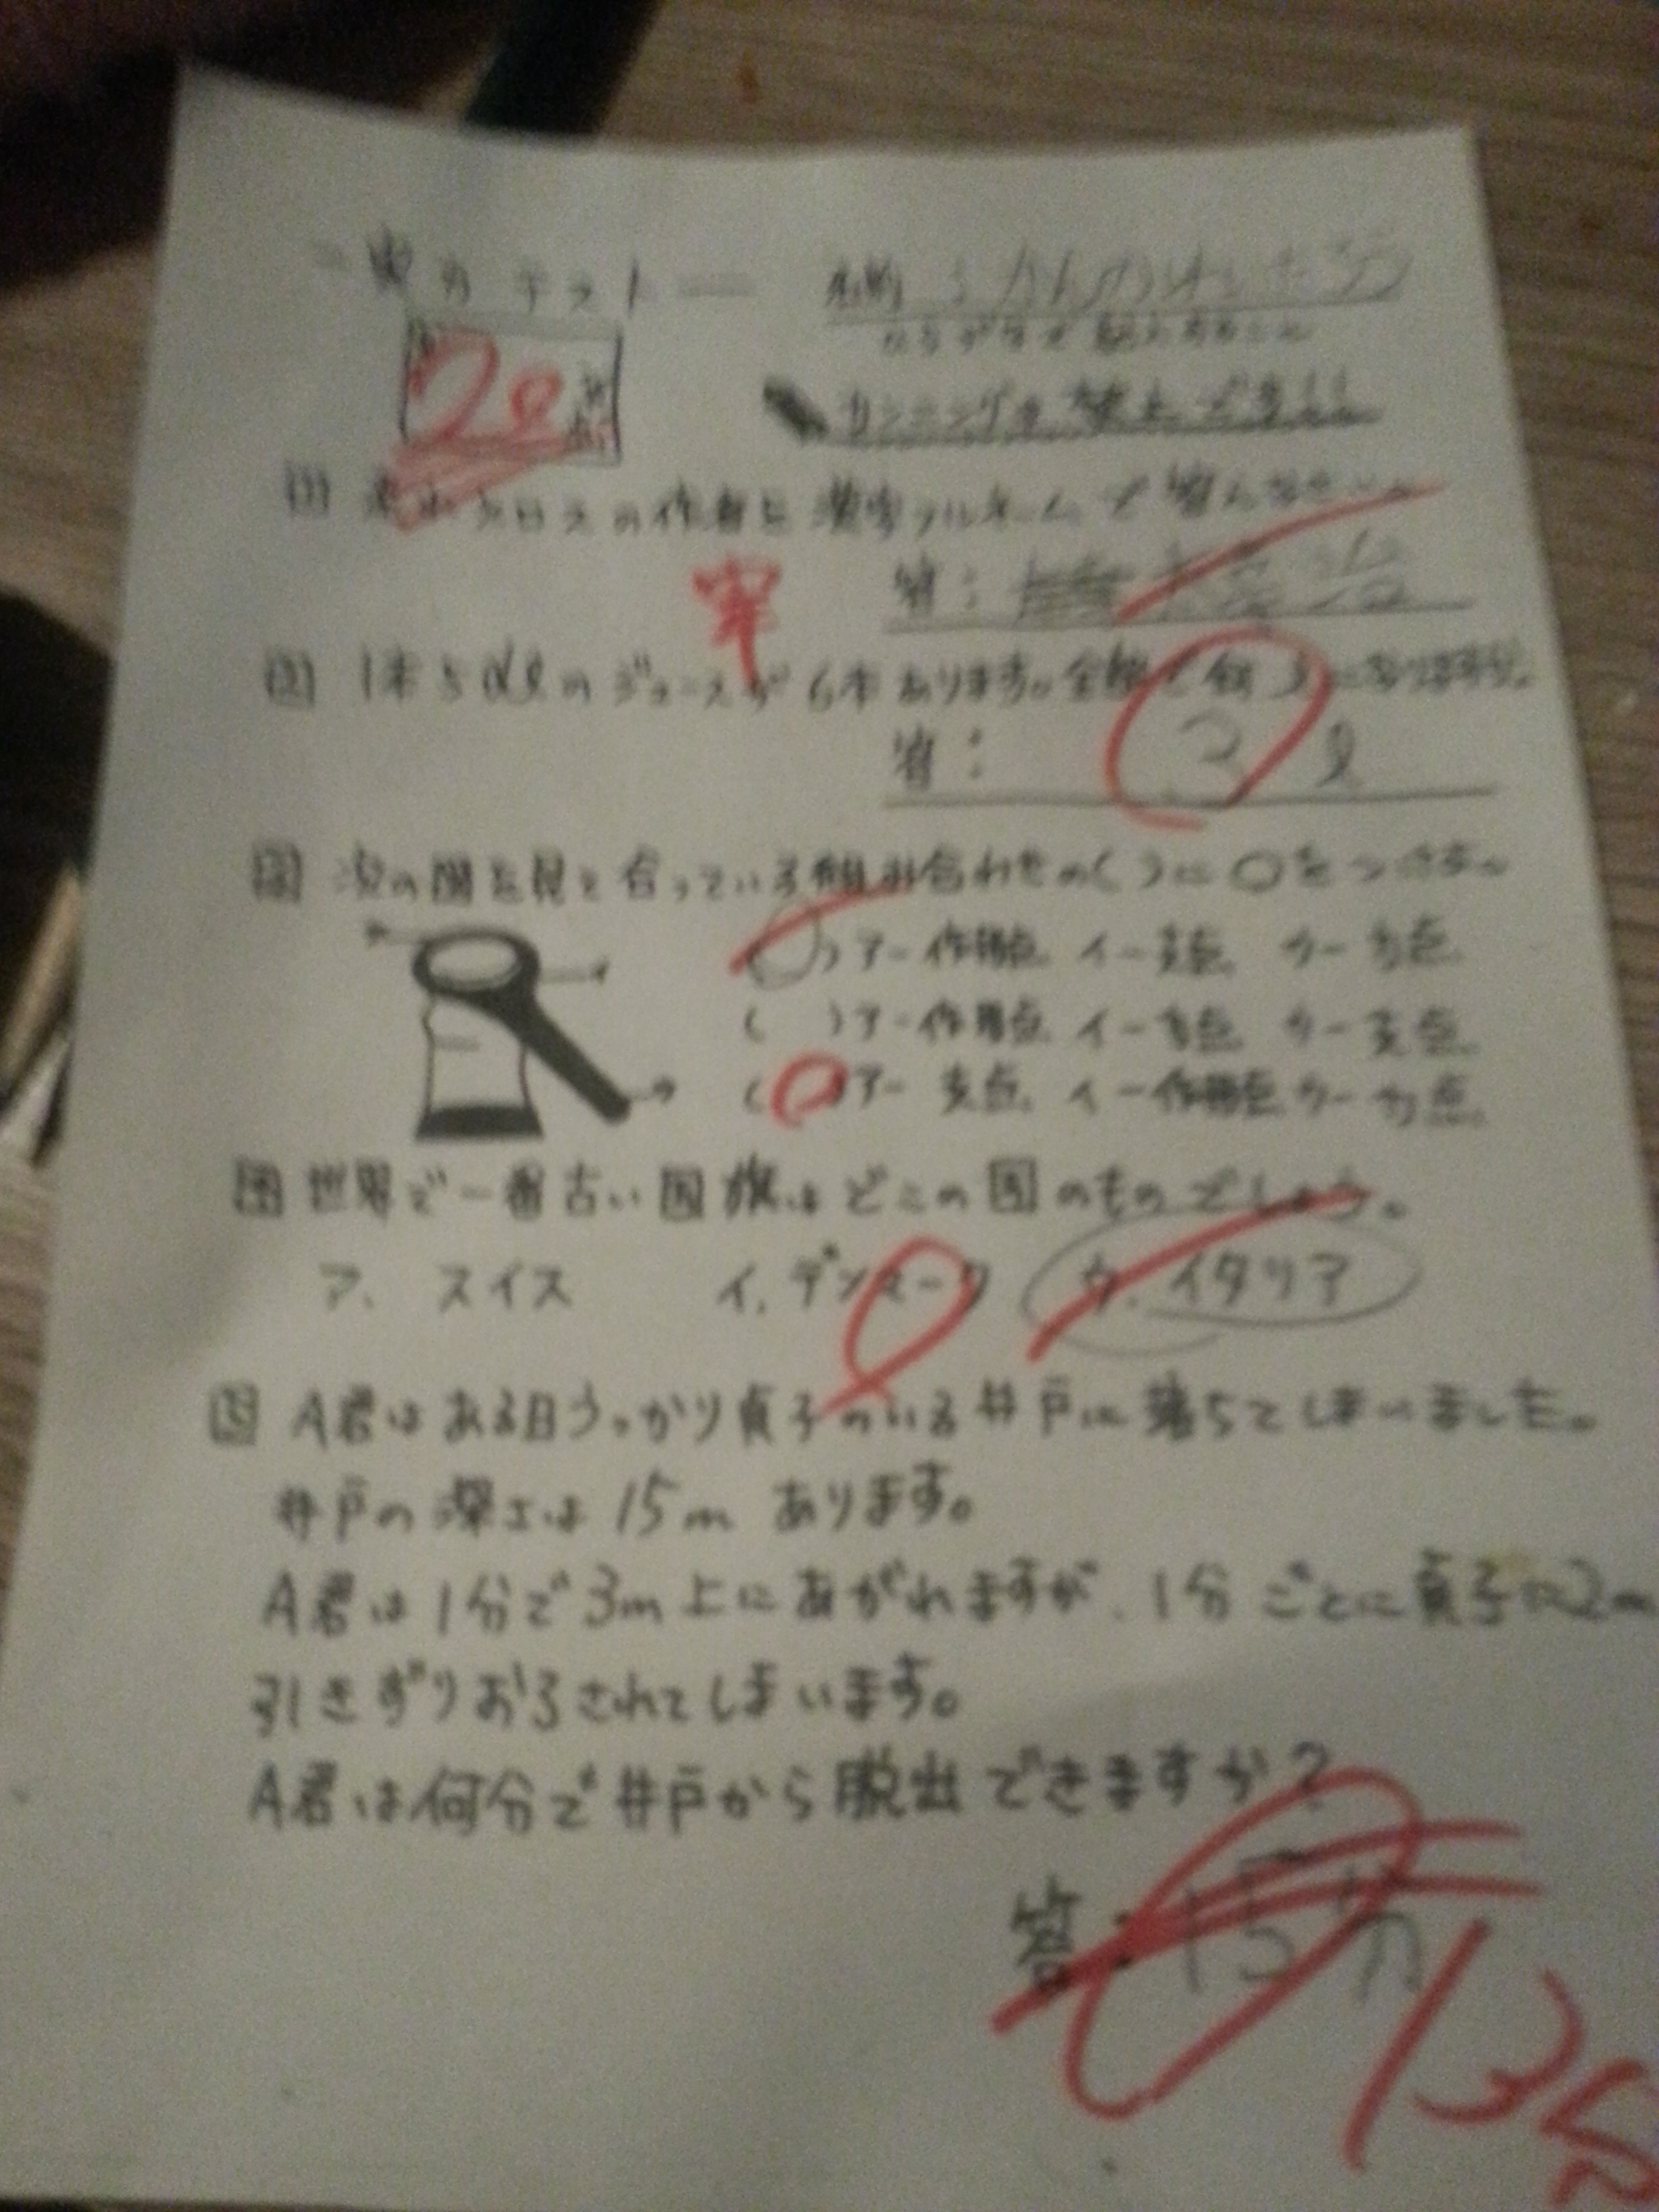 実力テスト
20 点
カンニングは禁止です!!
[1] 走れメロスの作者を漢字フルネームで答えなさい。
答: 太宰治
宰
[2] 1本5dlのジュースが6本あります。全部で何lになりますか。
答: 3 l
[3] 次の図を見て合っている組み合わせの( )に○をつけなさい。
( )ア-作用点 イ-支点 ウ-力点
( )ア-作用点 イ-力点 ウ-支点
( )ア-支点 イ-作用点 ウ-力点
[4] 世界で一番古い国旗はどこの国のものでしょう。
ア. スイス イ. デンマーク ウ. イタリア
[5] A君はある日うっかり貞子のいる井戸に落ちてしまいました。
井戸の深さは15mあります。
A君は1分で3m上にあがれますが、1分ごとに貞子に2m
引きずりおろされてしまいます。
A君は何分で井戸から脱出できますか?
答: 15分
13分